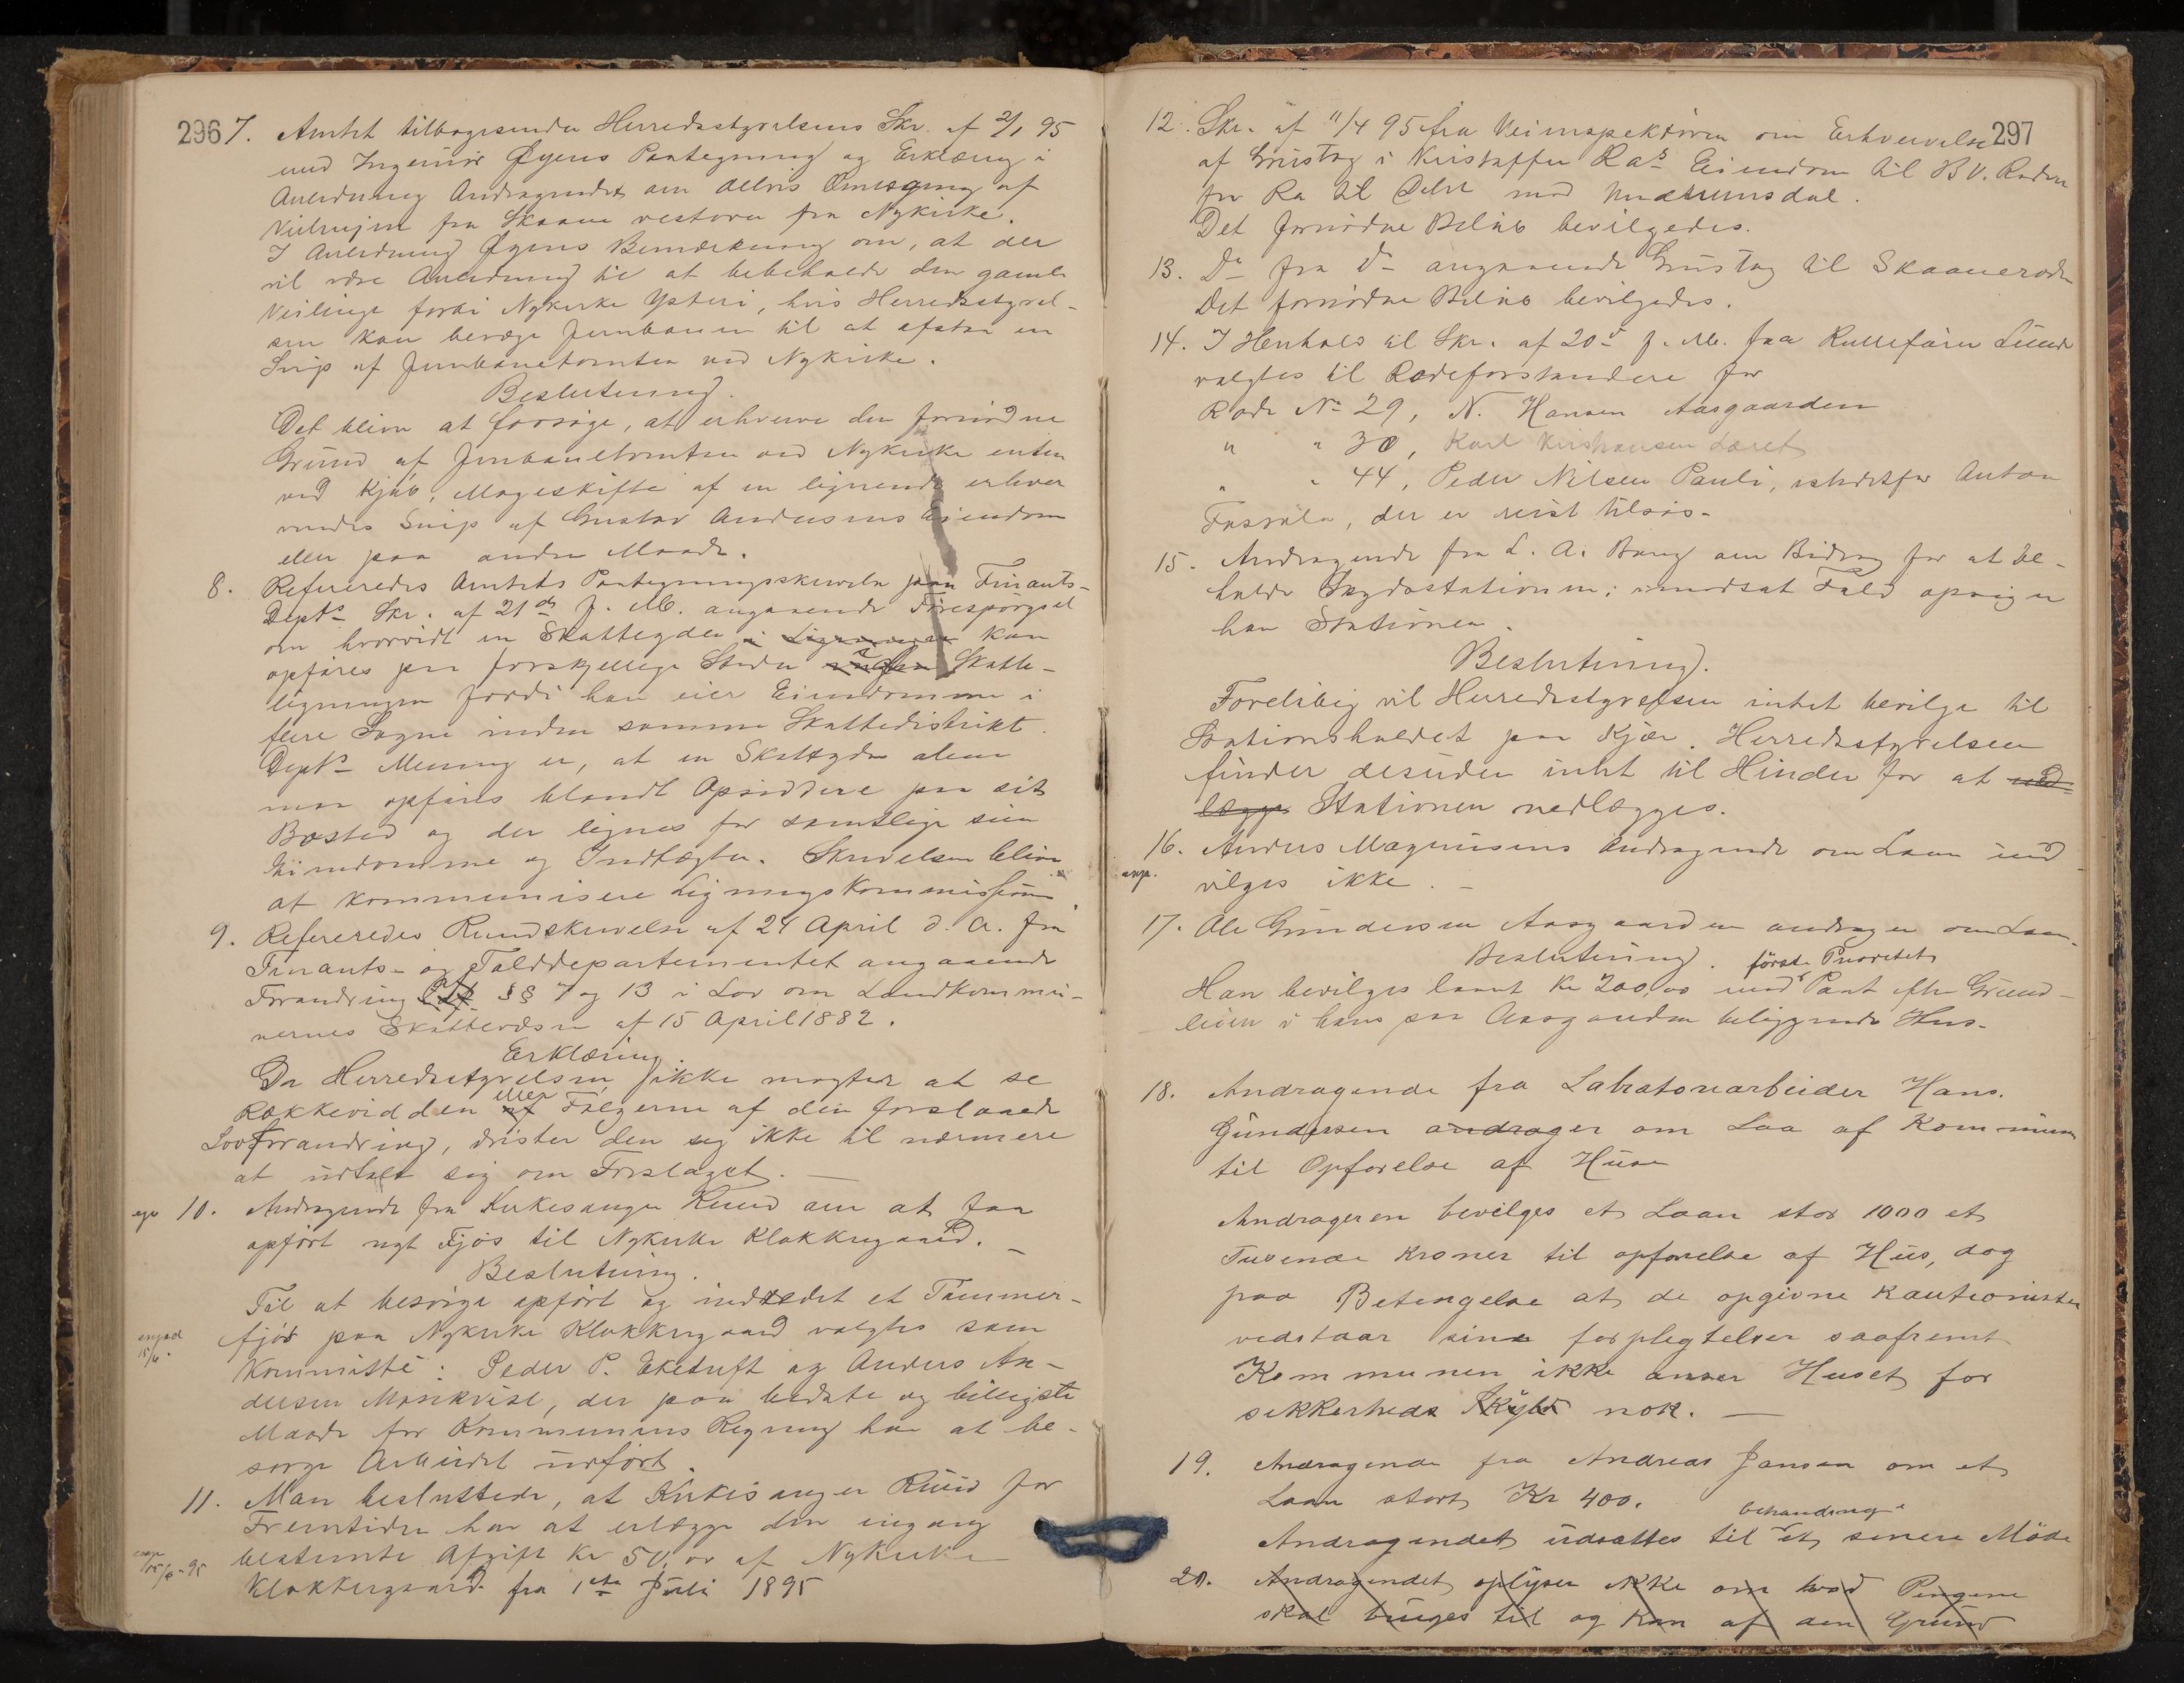 296
7. Amtet tilbagesender Herredsstyrelsens Skr. af 2/1 95
med Ingeniør Øyens Paategning og Erklæring i
Anledning Andragendet om delvis Omlægning af
Veilinjen fra Skaane vestover fra Nykirke.
I Anledning Øyens Bemærkning om, at der
vil være Anledning til at bebeholde den gamle
Veilinje forbi Nykirke Ysteri, hvis Herredsstyrel-
sen kan bevæge Jernbanen til at afstaa en
Snip af Jernbanetomten ved Nykirke.
Beslutning.
Det bliver at forsøge, at erhverve den fornødne
Grund af Jernbanetomten ved Nykirke enten
ved Kjøb, Mageskifte af en lignende erhver
vendes Snip af Gustav Andersens Eiendom
eller paa anden Maade.
8. Refereredes Amtets Paategningsskrivelse paa Finants-
Depts Skr. af 21de f. M. angaaende Forespørgsel
om hvorvidt en Skatteyder i kan
opføres paa forskjellige Steder Skatte-
ligningen fordi han eier Eiendomme i
flere Sogne inden samme Skattedistrikt.
Depts Mening er, at en Skatteyder alene
maa opføres blandt Opsiddere paa sit
Bosted og der lignes for samtlige sine
Eiendomme og Indtægter. Skrivelsen bliver
at kommunisere Ligningskommissionen.
9. Refereredes Rundskrivelse af 24 April d. A. fra
Finants- og Tolddepartementet angaaende
Forandring §§ 7 og 13 i Lov om Landkommu-
nernes Skattevæsen af 15 April 1882.
Erklæring.
Da Herredsstyrelsen ikke magter at se
Rækkevidden eller af Følgerne af den forslaaede
Lovforandring, drister den sig ikke til nærmere
at udtale sig om Forslaget. —
10. Andragende fra Kirkesanger Ruud om at faa
opført nyt Fjøs til Nykirke Klokkergaard. —
Beslutning.
Til at besørge opført og indredet et Tømmer-
fjøs paa Nykirke Klokkergaard valgtes som
15/6.
Kommitté: Peder P. Eketuft og Anders An-
dersen Mørkvist, der paa bedste og billigste
Maade for Kommunens Regning har at be-
sørge Arbeidet udført.
11. Man besluttede, at Kirkesanger Ruud for
Fremtiden har at erlægge den engang
bestemte Afgift Kr 50,00 af Nykirke
15/6-95
Klokkergaard fra 1ste Juli 1895
297
12. Skr. af 11/4 95 fra Veiinspektøren om Erhvervelse
af Grustag i Kristoffer Ras Eiendom til B.V. Roden
fra Ra til mod Undrumsdal.
Det fornødne Beløb bevilgedes.
13. Do fra do angaaende Grustag til Skaaneroden
Det fornødne Beløb bevilgedes.
14. I Henhold til Skr. af 20de f. M. fra Lund
valgtes til Rodeforstandere for
Rode No 29, N. Hansen Aasgaarden
" " 30, Karl Kristiansen
" " 44, Peder Nilsen Pauli, istedetfor Anton
, der er reist tilsjøs.
15. Andragende fra L. A. Bang om Bidrag for at be-
holde Skydsstationen; i modsat Fald opsiger
han Stationen.
Beslutning.
Foreløbig vil Herredsstyrelsen intet bevilge til
Stationsholdet paa Kjær. Herredsstyrelsen
finder desuden intet til Hinder for at ned-
lægge Stationen nedlægges.
16. Anders Magnusens Andragende om Laan ind
exp. vilges ikke. —
17. Ole Gundersen Aasgaarden andrager om Laan.
Beslutning. første Prioritets
Han bevilges laant Kr 200,00 mod Pant efter Grund-
leien i hans paa Aasgaarden beliggende Hus.
18. Andragende fra Labratoriearbeider Hans
Gundersen andrager om Laa af Kommunen
til Opførelse af Huse
Andrageren bevilges et Laan stor 1000 et
Tusende Kroner til opførelse af Hus, dog
paa Betengelse at de opgivne Kautionister
vedstaar sine forplegtelser saafremt
Kommunen ikke anser Huset for
sekkerheds Skyld nok. —
19. Andragende fra Andreas Jansen om et
Laan stort Kr 400.
behandling i
Andragendet udsættes til et senere Möde
20. Andragendet oplyser ikke om hvad Pengene
skal bruges til og kan af den Grund